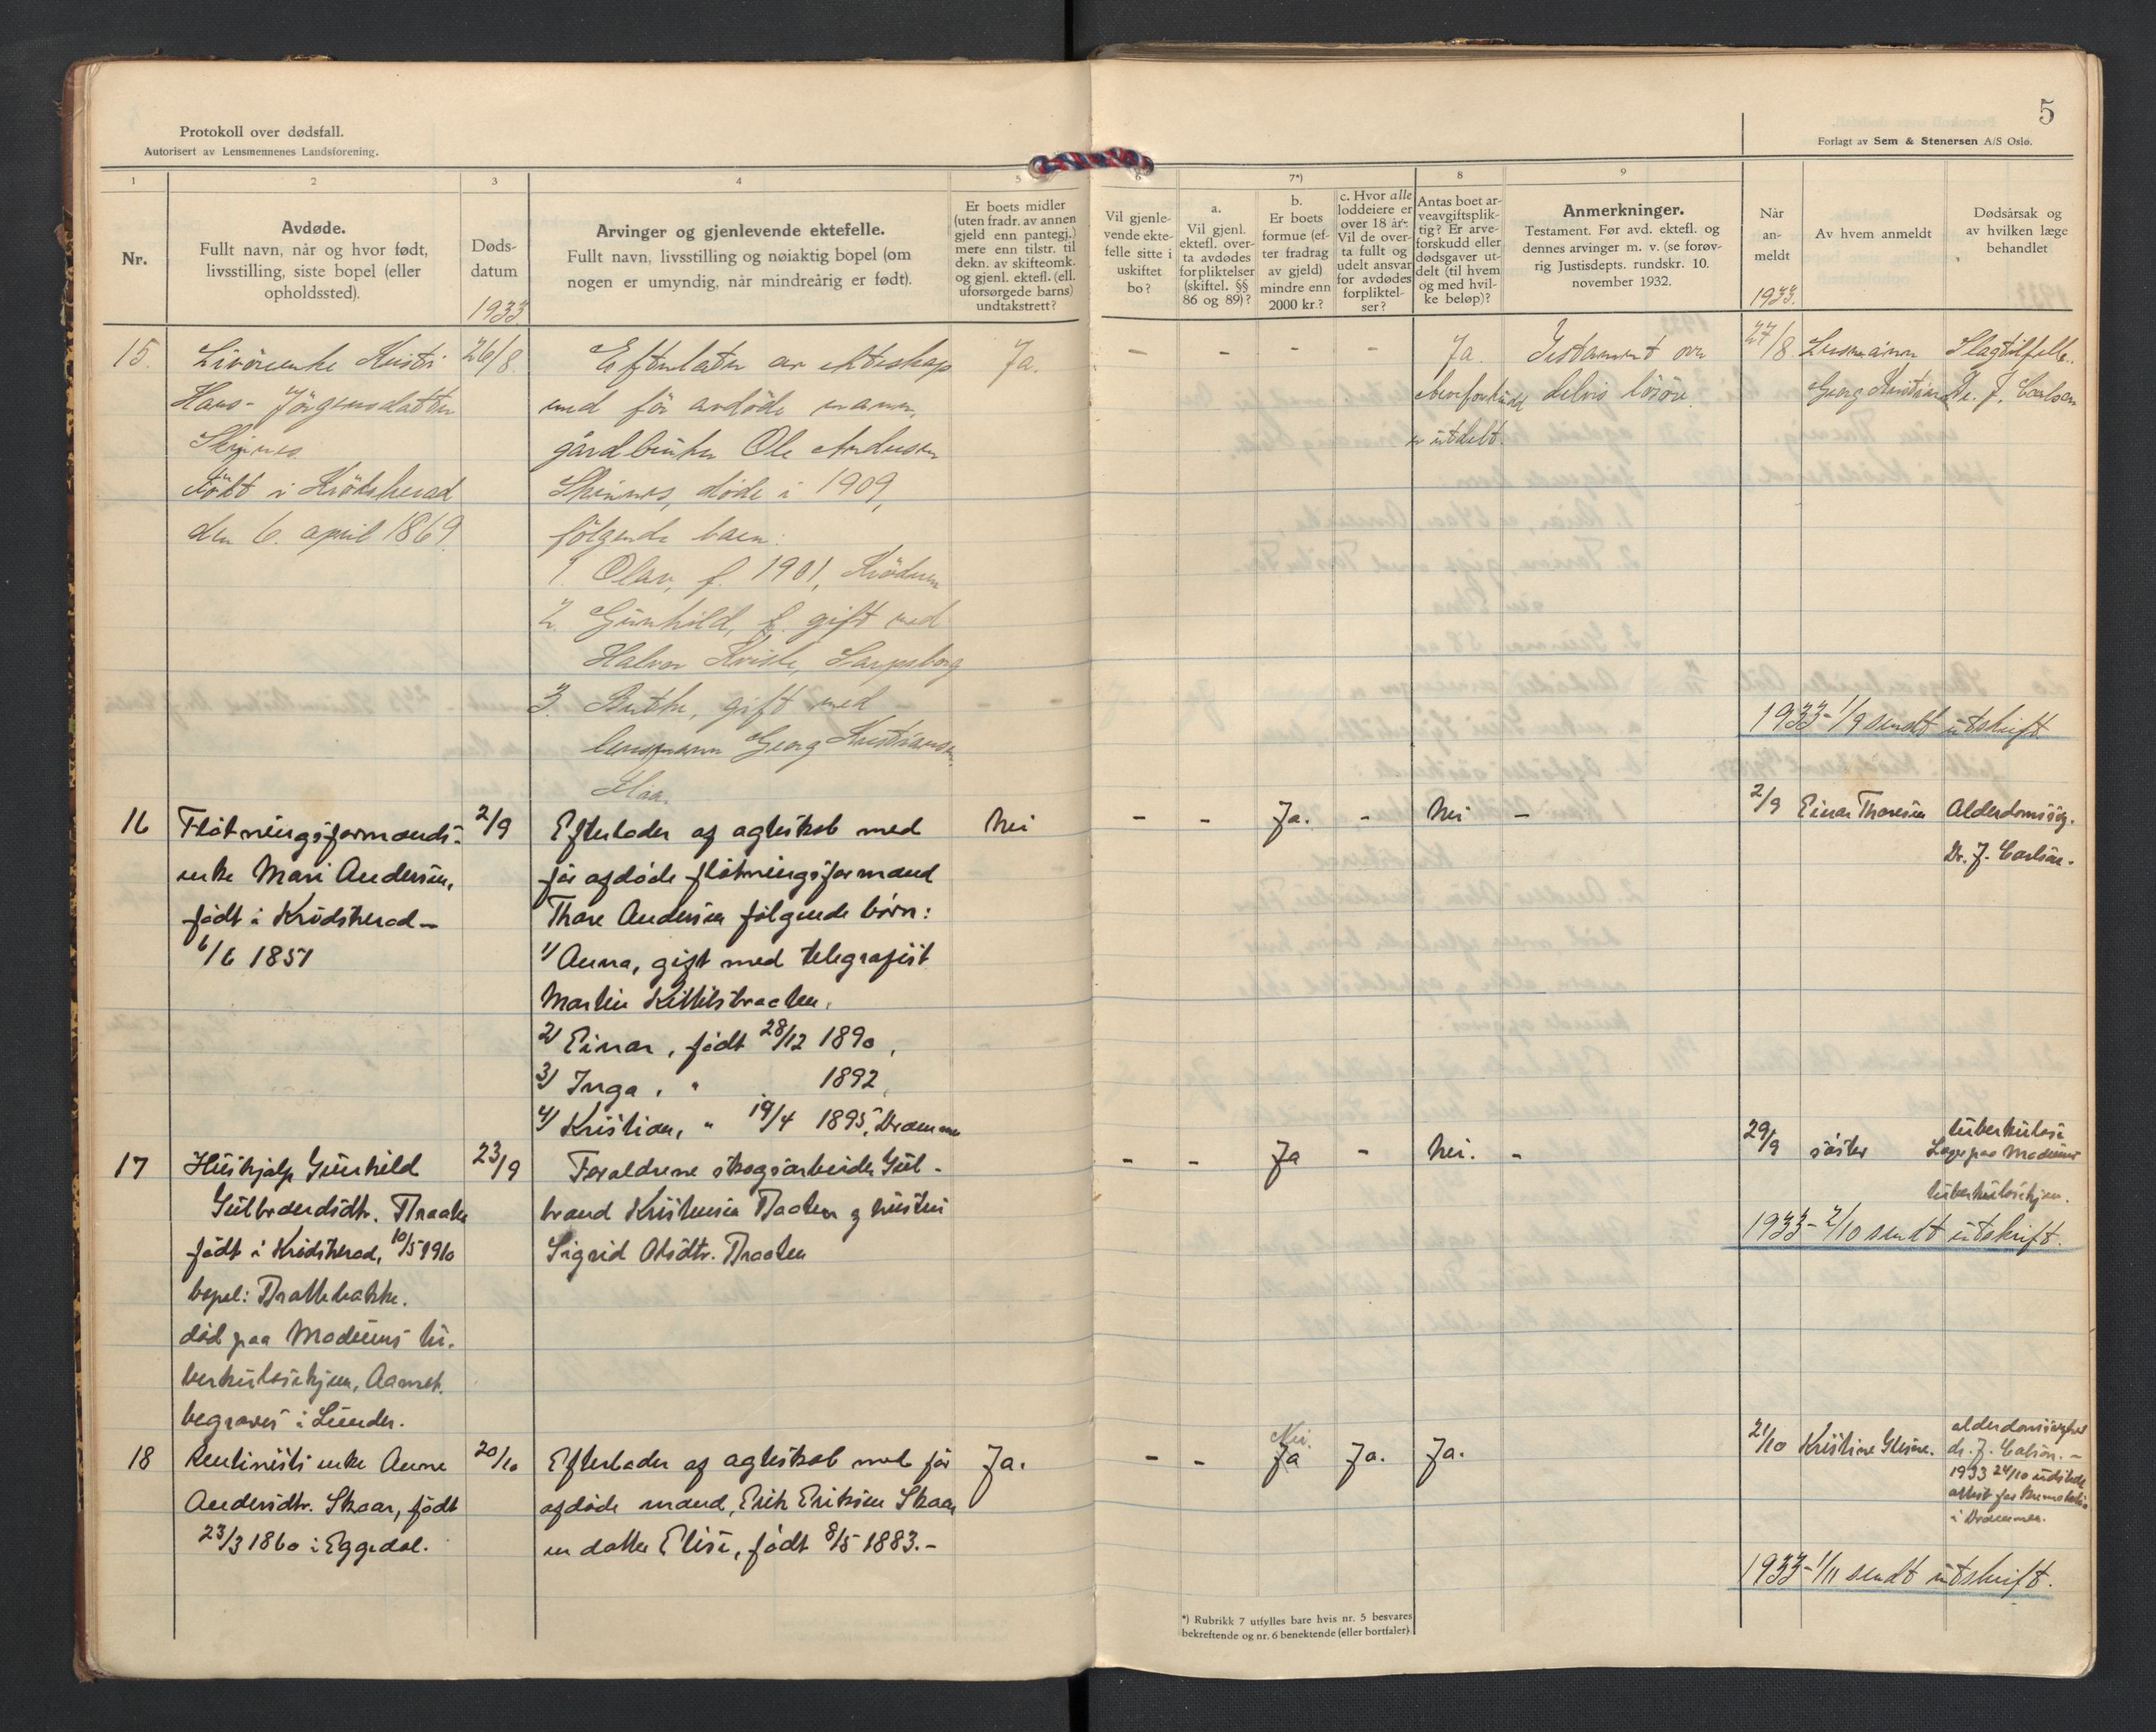 Protokoll over dødsfall.
Autorisert av Lensmennenes Landsforening.
5
Forlagt av Sem & Stenersen A/S Oslo.
1
2
3
4
5
6
7*)
8
9
Nr.
Avdøde.
Fullt navn, når og hvor født,
livsstilling, siste bopel (eller
opholdssted).
Døds-
datum
1933
Arvinger og gjenlevende ektefelle.
Fullt navn, livsstilling og nøiaktig bopel (om
nogen er umyndig, når mindreårig er født).
Er boets midler
(uten fradr. av annen
gjeld enn pantegj.)
mere enn tilstr. til
dekn. av skifteomk.
og gjenl. ektefl. (ell.
uforsørgede barns)
undtakstrett?
Vil gjenle-
vende ekte-
felle sitte i
uskiftet
bo?
a.
Vil gjenl.
ektefl. over-
ta avdødes
forpliktelser
(skiftel. §§
86 og 89)?
b.
Er boets
formue (ef-
ter fradrag
av gjeld)
mindre enn
2000 kr.?
c. Hvor alle
loddeiere er
over 18 år:
Vil de over-
ta fullt og
udelt ansvar
for avdødes
forpliktel-
ser?
Antas boet ar-
veavgiftsplik-
tig? Er arve-
forskudd eller
dødsgaver ut-
delt (til hvem
og med hvil-
ke beløp)?
Anmerkninger.
Testament. Før avd. ektefl. og
dennes arvinger m. v. (se forøv-
rig Justisdepts. rundskr. 10.
november 1932.
Når
an-
meldt
1933.
Av hvem anmeldt
Dødsårsak og
av hvilken læge
behandlet
15.
Livörenke Kristi
Hans-Jörgensdatter
Skinnes
Födt i Krödsherad
den 6. april 1869.
26/8.
Efterlater av ekteskap
med för avdöde mann,
gårdbruker Ole Andersen
Skinnes, döde i 1909,
fölgende barn:
1. Olav, f. 1901, Krödsen
2. Gunhild, f. gift med
Halvor Kviste, Sarpsborg
3. Birthe, gift med
lensmann Georg Kristiansen,
Ja.
- - - -
Ja.
Arveforskudd
er utdelt.
Testament over
delvis lösöre.
27/8
Lensmann
Georg Kristiansen
Slagtilfelle.
Dr. J. Carlsen
1933-1/9 sendt utskrift.
16
Fløtningsformands-
enke Mari Andersen,
født i Krødsherad-
6/6 1851
2/9
Efterlader af ægteskab med
før afdøde fløtningsformand
Thore Andersen følgende børn:
1) Anna, gift med telegrafist
Martin Kittilsbraaten.
2) Einar, født 28/12 1890,
3) Inga, " 1892,
4) Kristian, " 19/4 1895, Drammen
Nei
- - Ja. - Nei -
2/9
Einar Thoresen
Alderdomssvg.
Dr. J. Carlsen.
17
Hushjælp Gunhild
Gulbrandsdtr. Braaten
født i Krødsherad, 10/5 1910
bopel: Brattebakke.
død paa Modums tu-
berkulosehjem, Aamot.
begraves i Lunder.
23/9
Forældrene skogsarbeider Gul-
brand Kristensen Braaten og hustru
Sigrid Olsdtr. Braaten
- - Ja - Nei. -
29/9
søster
tuberkulose
Læge paa Modums
tuberkulosehjem.
1933-2/10 sendt utskrift.
18
Rentinists enke Anne
Andersdtr. Skaar, født
23/3 1860 i Eggedal.
20/10
Efterlader af ægteskab med før
afdøde mand, Erik Eriksen Skaar
en datter Elise, født 8/5 1883.-
Ja.
- -
Nei.
Ja
Ja. Ja.
21/10
Kristine Glesne.
alderdomssvaghet
dr. J. Carlsen. -
1933 24/10 udstedt
attest for
i Drammen.
1933-1/11 sendt utskrift.
*) Rubrikk 7 utfylles bare hvis nr. 5 besvares
bekreftende og nr. 6 benektende (eller bortfaler).